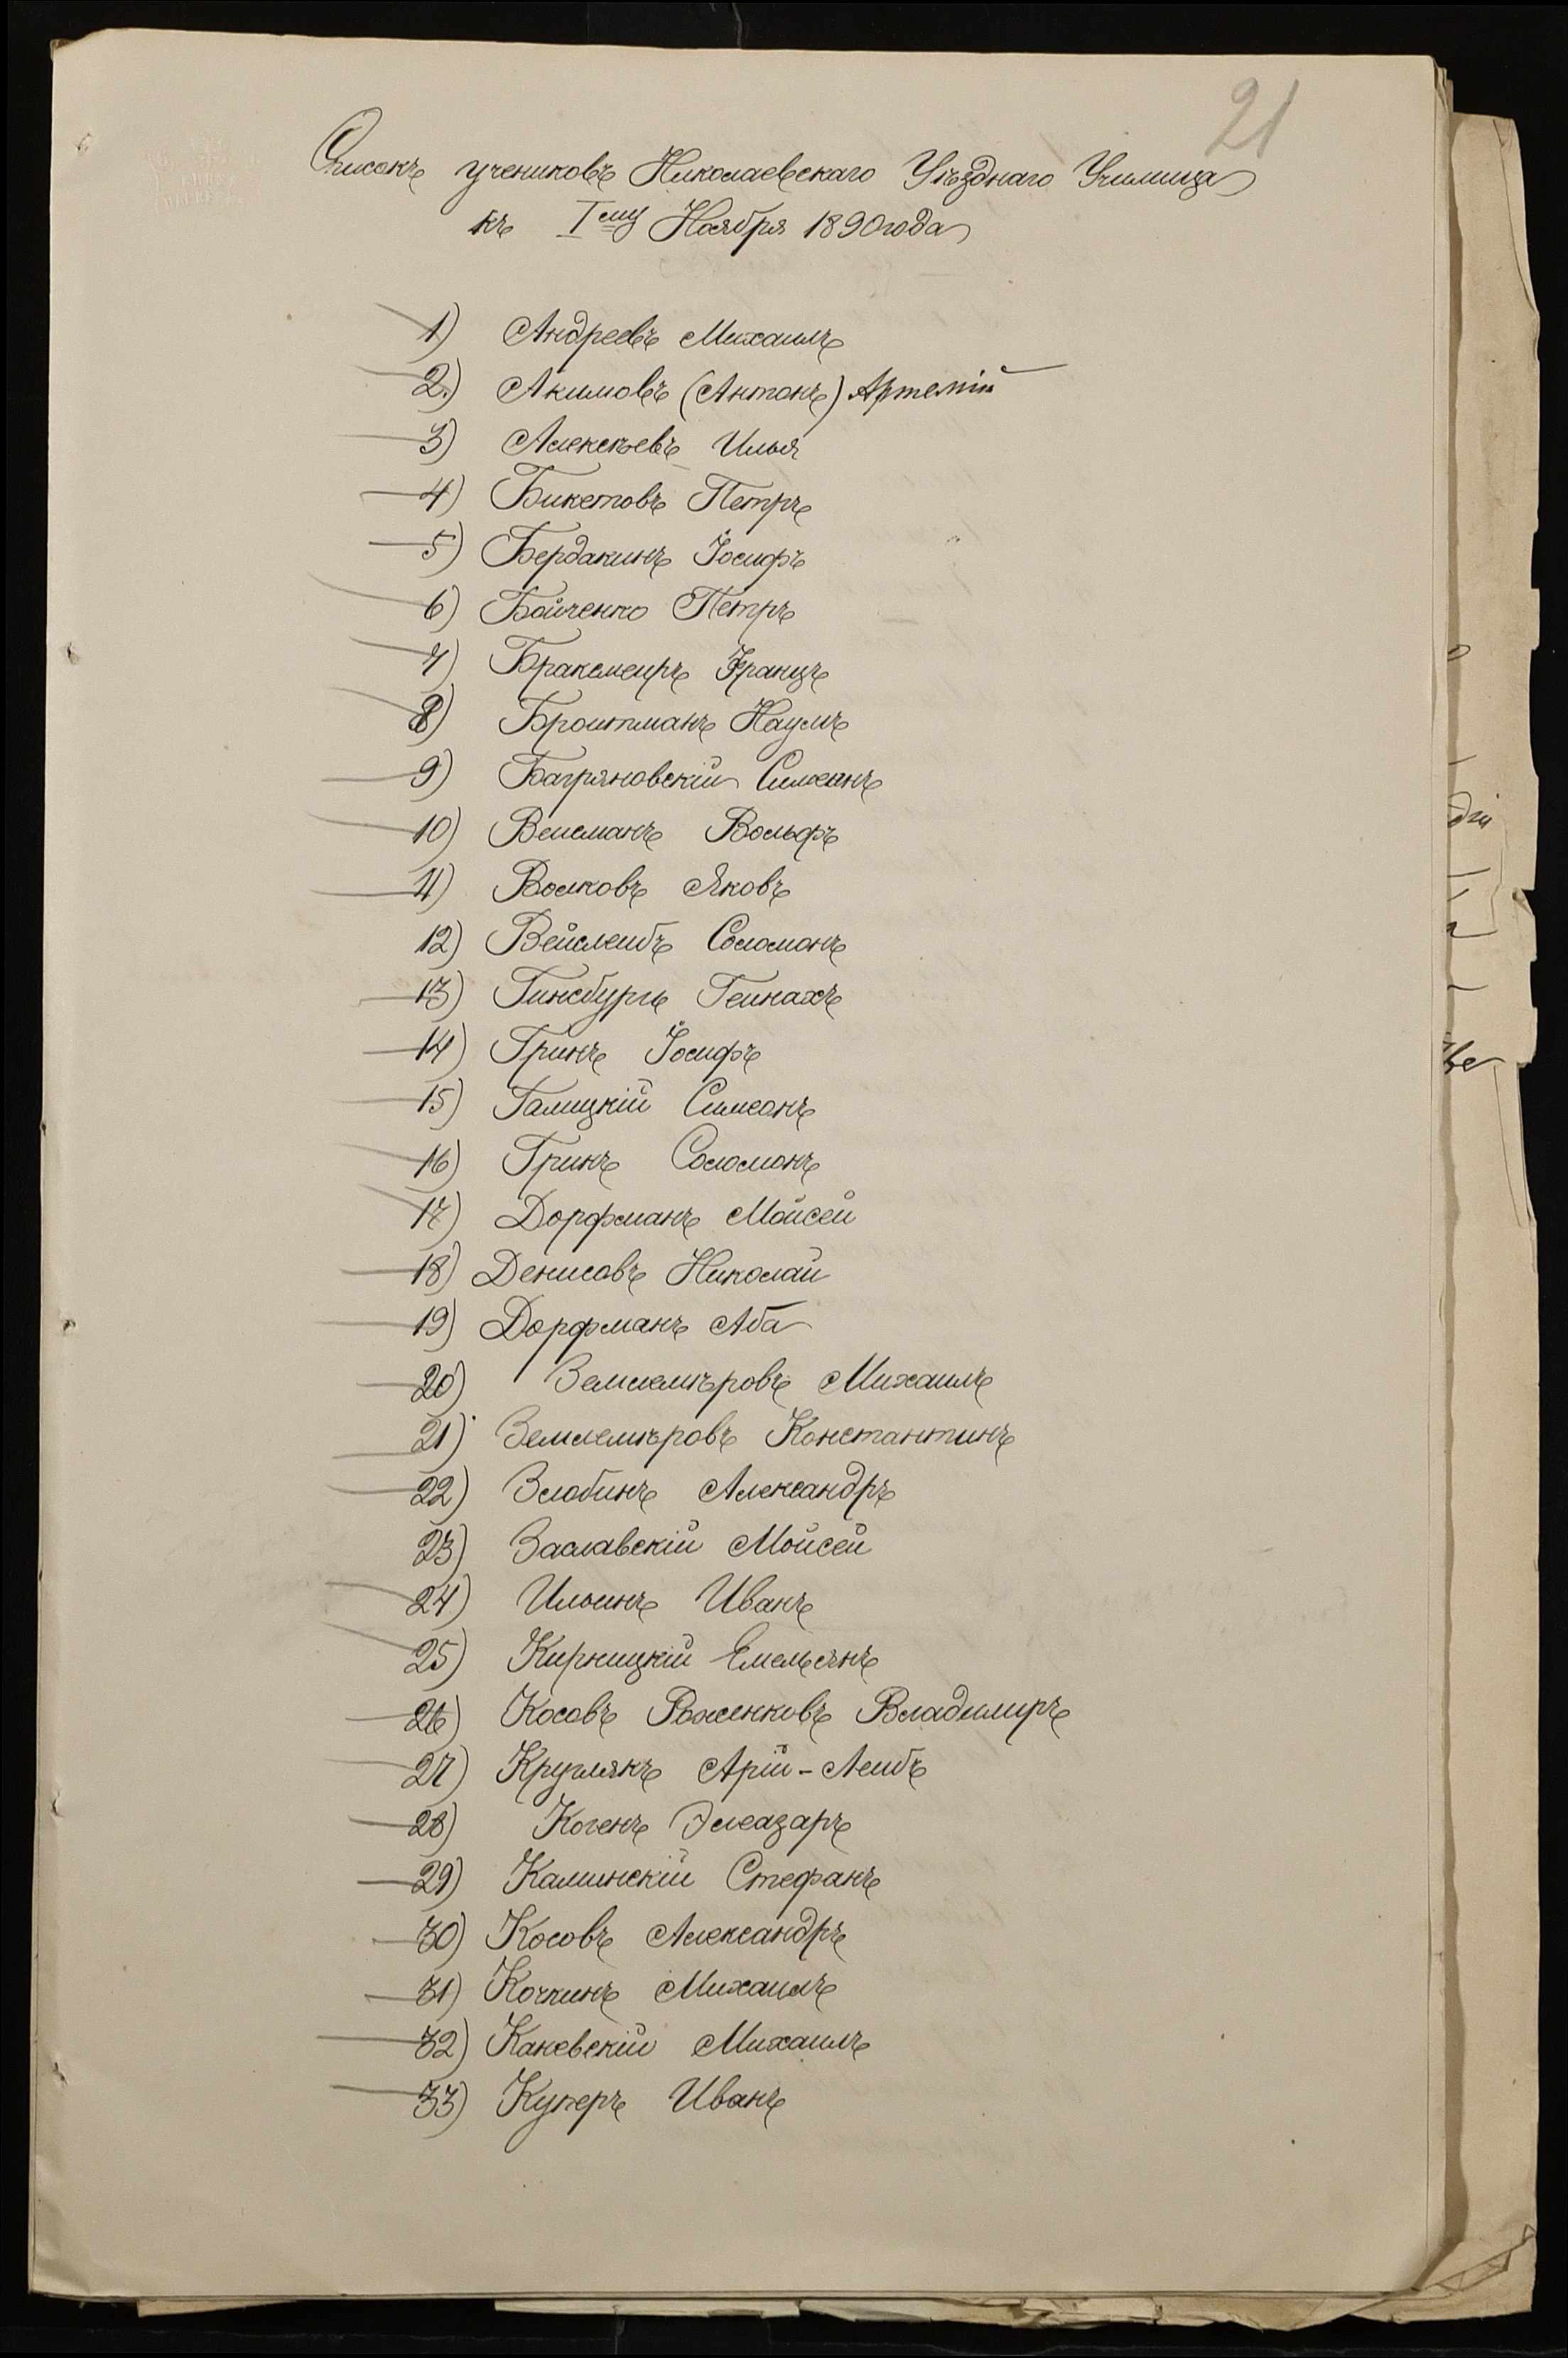 21
Списокъ учениковъ Николаевскаго Уѣзднаго Училища
къ I му Ноября 1890 года
1) Андреевъ Михаилъ
2.) Акимовъ (Антонъ) Артемій
3) Алексѣевъ Илья
4) Бикетовъ Петръ
5) Бердакинъ Іосифъ
6) Бойченко Петръ
7) Браксмеиръ Францъ
8) Броитманъ Наумъ
9) Багряновскій Симеонъ
10) Веисманъ Вольфъ
11) Волковъ Яковъ
12) Вейслеибъ Соломонъ
13) Гинсбургъ Геинахъ
14) Гринъ Іосифъ
15) Галицкій Симеонъ
16) Гринъ Соломонъ
17) Дорфманъ Мойсей
18) Денисовъ Николай
19) Дорфманъ Аба
20) Землемѣровъ Михаилъ
21) Землемѣровъ Константинъ
22) Злобинъ Александръ
23) Заславскій Мойсей
24) Ильинъ Иванъ
25) Кирницкій Емельянъ
26) Косовъ Владимиръ
27) Круглякъ Арій-Леибъ
28) Когенъ Элеазаръ
29) Калинскій Стефанъ
30) Косовъ Александръ
31) Кочкинъ Михаилъ
32) Каневскій Михаилъ
33) Куперъ Иванъ